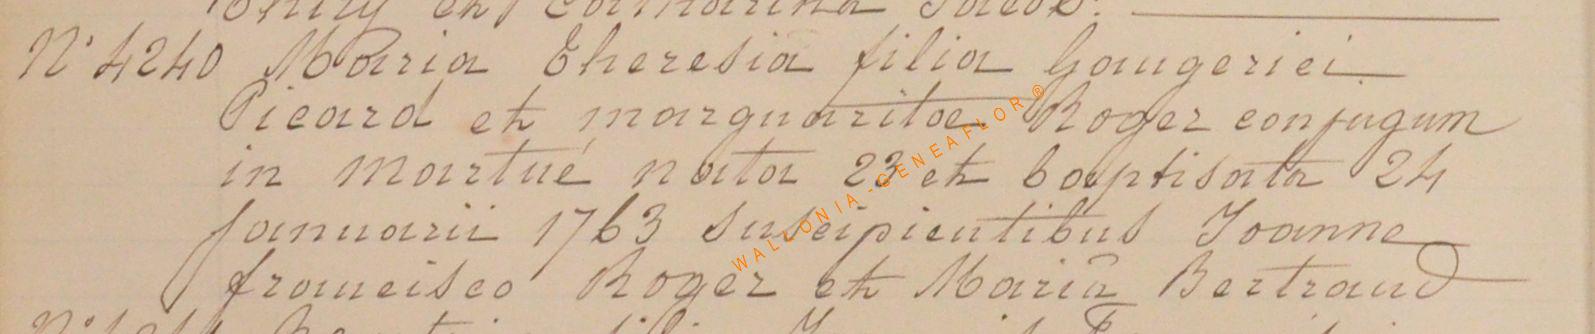 Thiry et Catharina Jacob.
N° 4240 Maria Theresia filia Gaugeriei
Picard et marguaritae Roger conjugum
in Martué nata 23 et baptisata 24
januarii 1763 suscipientibus Joanne
francisco Roger et Maria Bertrand
WALLONIA-GENEAFLOR®